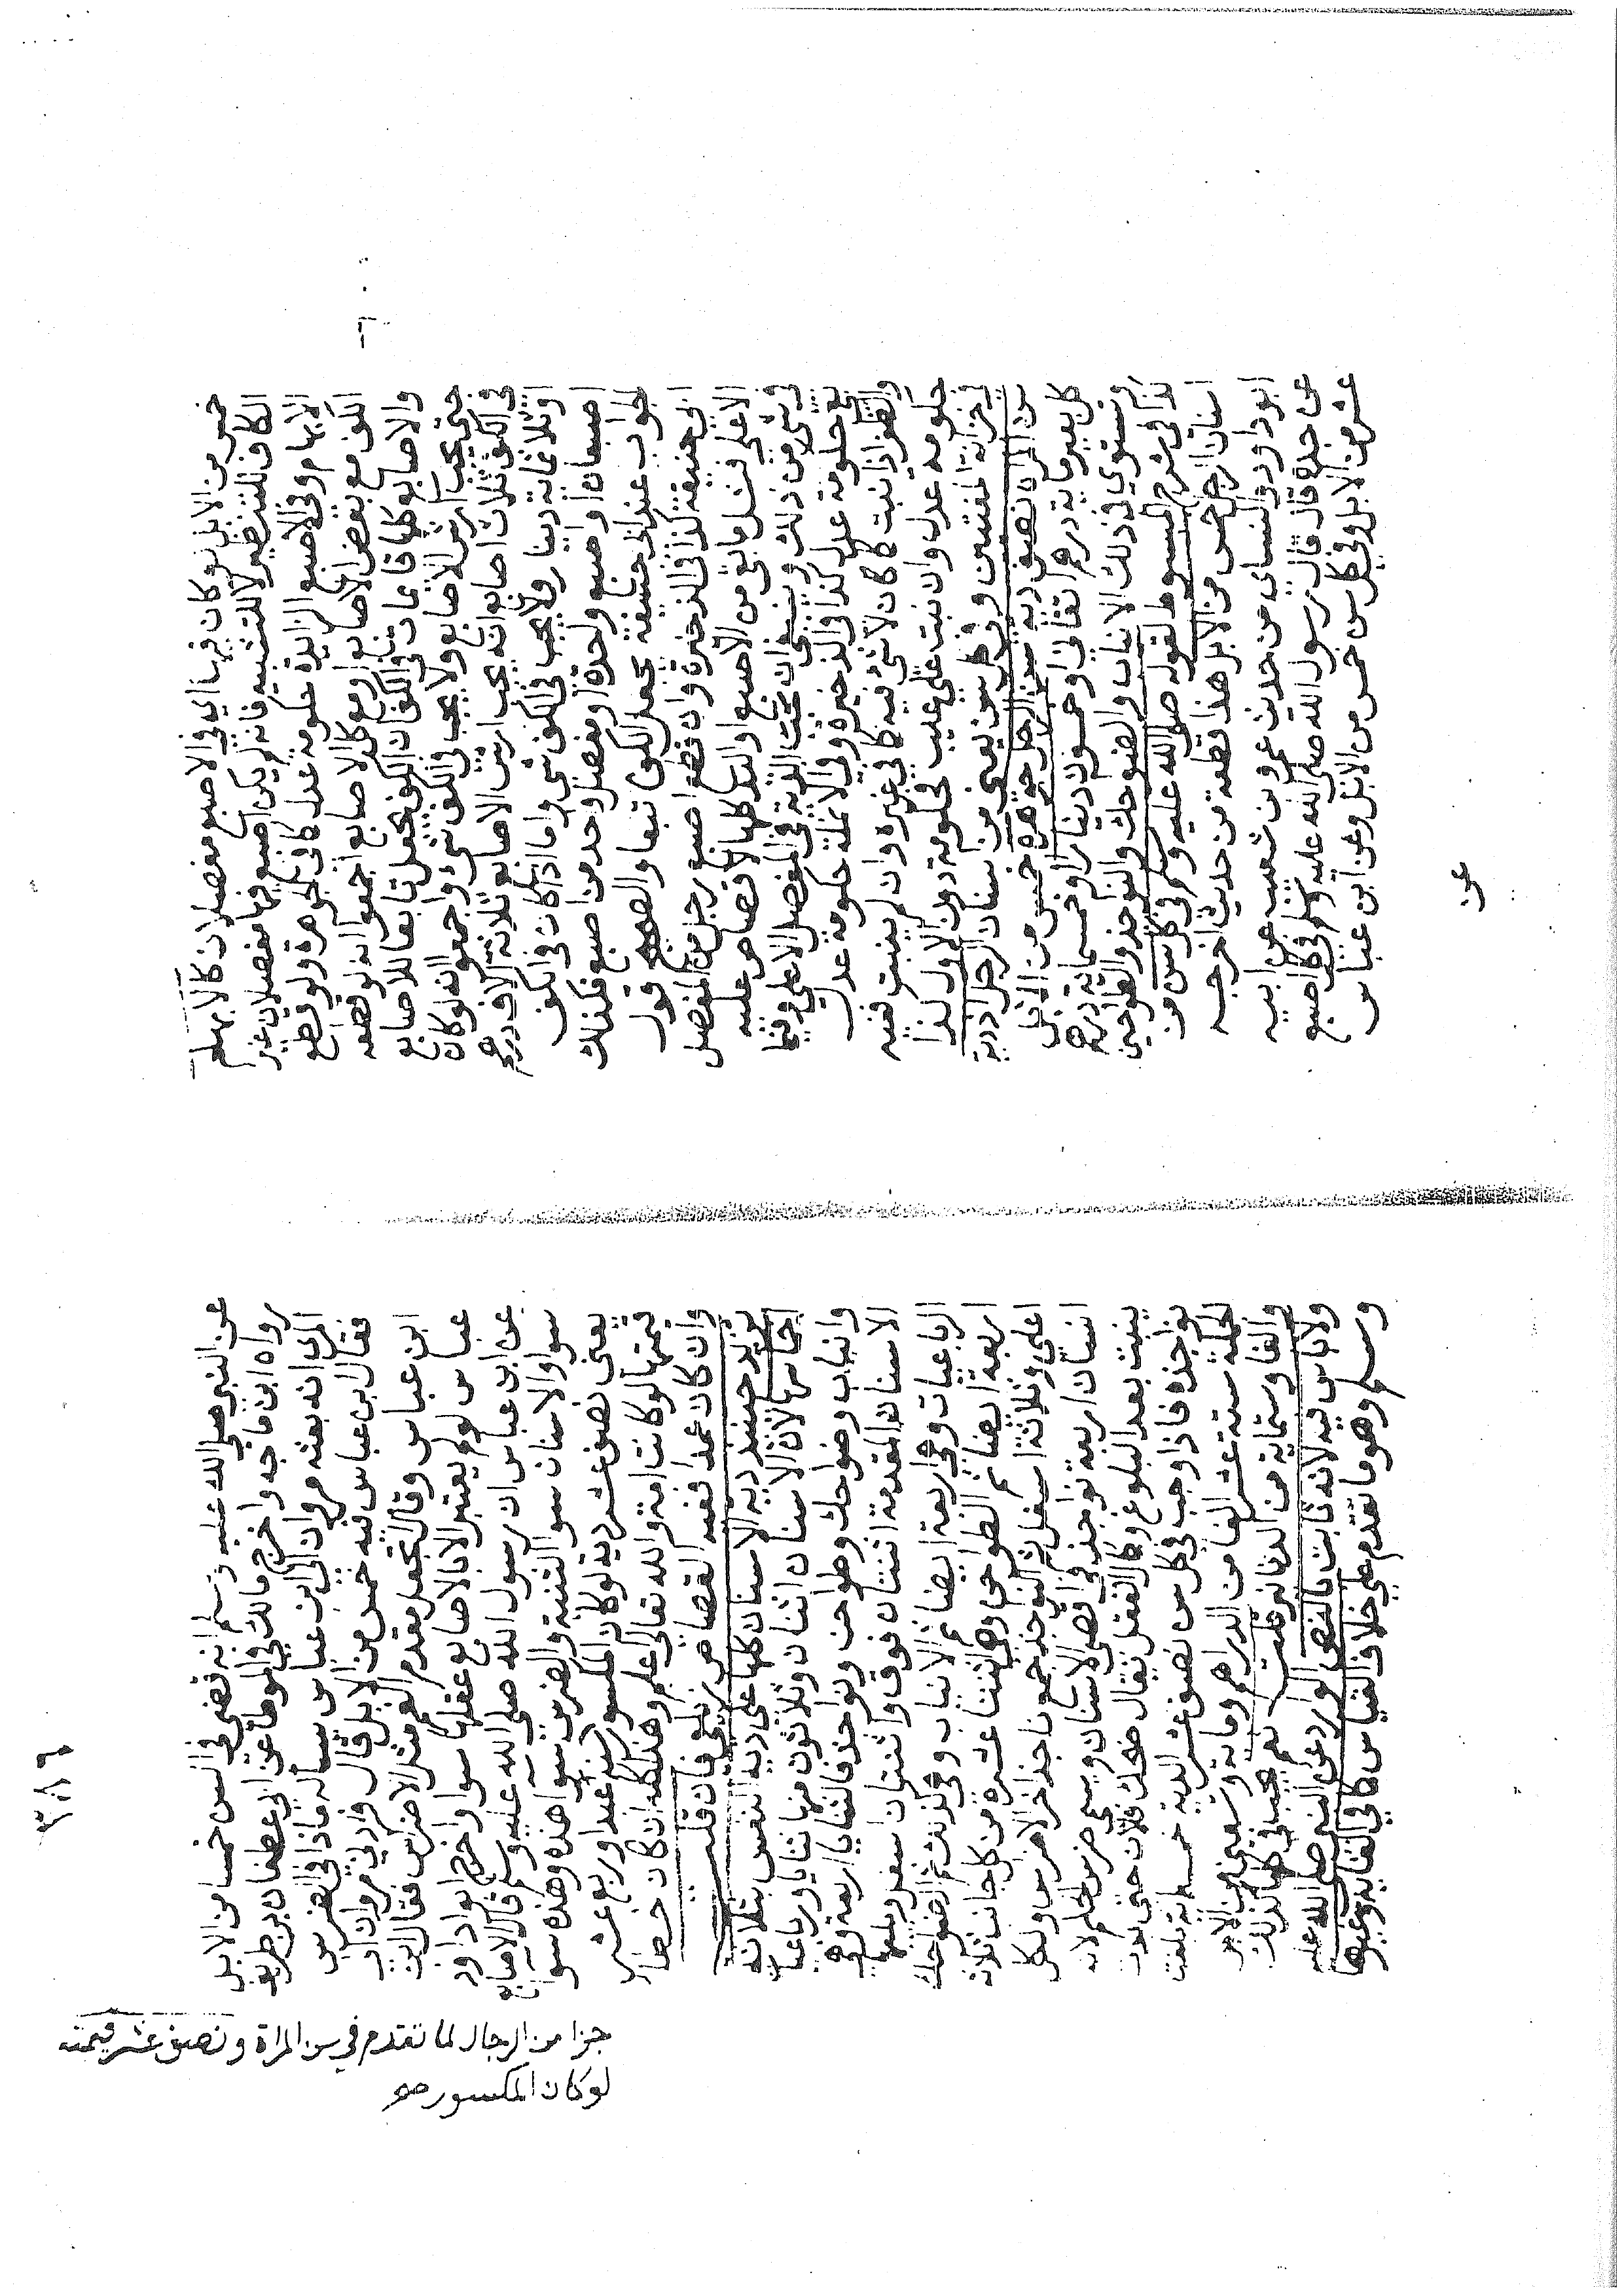 خمس من الابل لو كان فيها اي في الاصبع مفصلان كالابهام
الكاف للتنظير لا للتشبيه فانه لم يكن اصبع فيها مفصلان غير
الابهام وفي الاصبع الزايدة حكومة عدل كما في الجوهرة ولو قطع
الكف مع بعض الاصابع او مع كل الاصابع اجمعوا انه لو قطعه
والاصابع كلها قايمات في الكف ان الكف يجعل تابعا للاصابع
حتى يجب ارش الاصابع ولا يجب في الكف شيء واجمعوا انه لو كان
في الكف ثلاث اصابع انه يجب ارش الاصابع ثلاثة الاف درهم
او ثلاثماية دينار ولا يجب في الكف شي واما اذا كان في الكف
اصبعان او اصبع واحدة او مفصل واحد من اصبع فكذلك
الجواب عند ابي حنيفة يجعل الكف تبعا والصحيح قول
ابي حنيفة كذا في الذخيرة وان قطع اصبع رجل من المفصل
الاعلى فشل ما بقي من الاصبع او اليد كلها لا قصاص عليه
في شي من ذلك وينبغي ان تجب الدية في المفصل الاعلى وفيما
بقي حكومة عدل كذا في الذخيرة وفي الانملة حكومة عدل
والظفر اذا نبت كما كان لا شي فيه كما في غيره وان لم ينبت ففيه
حكومة عدل وان نبت على عيب فحكومة دون الاول كذا
في خزانة المفتيين وفي كل سن يعني من اسنان الرجل اذ دية
سن المراة نصف دية سن الرجل جوهرة خمس من الابل
كل بعير ماية درهم اتقاني او خمسون دينارا او خمسماية درهم
ويستوي في ذلك الانياب والضواحك والنواجذ والطواحين
كذا في شرح المبسوط لقوله صلى الله عليه وسلم وفي كل سن من
اسنان الرجل خمس من الابل هذا قطعة من حديث اخرجه
ابو داود والنساي من حديث عمرو بن شعيب عن ابيه
عن جده قال قال رسول الله صلى الله عليه وسلم في كل اصبع
عشر من الابل وفي كل سن خمس من الابل وعن ابن عباس
عن
٣٨٩
عن النبي صلى الله عليه وسلم انه قضى في السن خمسا من الابل
رواه ابن ماجه واخرج مالك في الموطا عن ابي غطفان بن طريف
المري انه بعثه مروان الى ابن عباس ساله ماذا في الضرس
فقال ابن عباس فيه خمس من الابل قال فردني مروان الى
ابن عباس وقال اتجعل مقدم الفم مثل الاضراس فقال ابن
عباس لو لم يعتبر الا بالاصابع عقلها سوا واخرج ابو داود
عن ابن عباس ان رسول الله صلى الله عليه وسلم قال الاصابع
سوا والاسنان سوا الثنية والضرس سوا هذه وهذه سوا
يعني نصف عشر دية لو كان المكسور سنه عبدا وربع عشر
قيمتها لو كانت امة والله تعالى اعلم وهذا كله ان كان خطا
وان كان عمدا ففيه القصاص زيلعي فان قلت
يزيد حينئذ دية الاسنان كلها على دية النفس بثلاثة
اخماسها لان الاسنان اثنان وثلاثون منها ثنايا ورباعيا
وانياب وضواحك وطواحن ونواجذ فالثنايا اربعة وهي
الاسنان المقدمة اثنتان فوق واثنتان اسفل ويليها
الرباعيات وهي اربعة ايضا ثم الانياب وهي كذلك ثم الضواحك
اربعة ايضا ثم الطواحن وهي اثنتا عشرة من كل جانب ثلاثة
اعلى وثلاثة اسفل ثم النواجذ جمع ناجذ اخر الاضراس ولكل
انسان اربعة نواجذ في اقصى الاسنان ويسمى ضرس الحلم لانه
ينبت بعد البلوغ وكمال العقل يقال ضحك فلان حتى بدت
نواجذه فاذا وجب في كل سن نصف عشر الدية خمسماية بلغت
الجملة ستة عشر الفا من الدراهم وماية وستين من الابل
والفا وستماية من الدنانير قلت نعم يجب في كلها كذلك
ولا باس فيه لانه ثابت بالنص الوارد عن النبي صلى الله عليه
وسلم وهو ما تقدم على خلاف القياس كما في الغاية وغيرها
جزا من الرجال لما تقدم في سن المراة ونصف عشر قيمته
لو كان المكسور صح